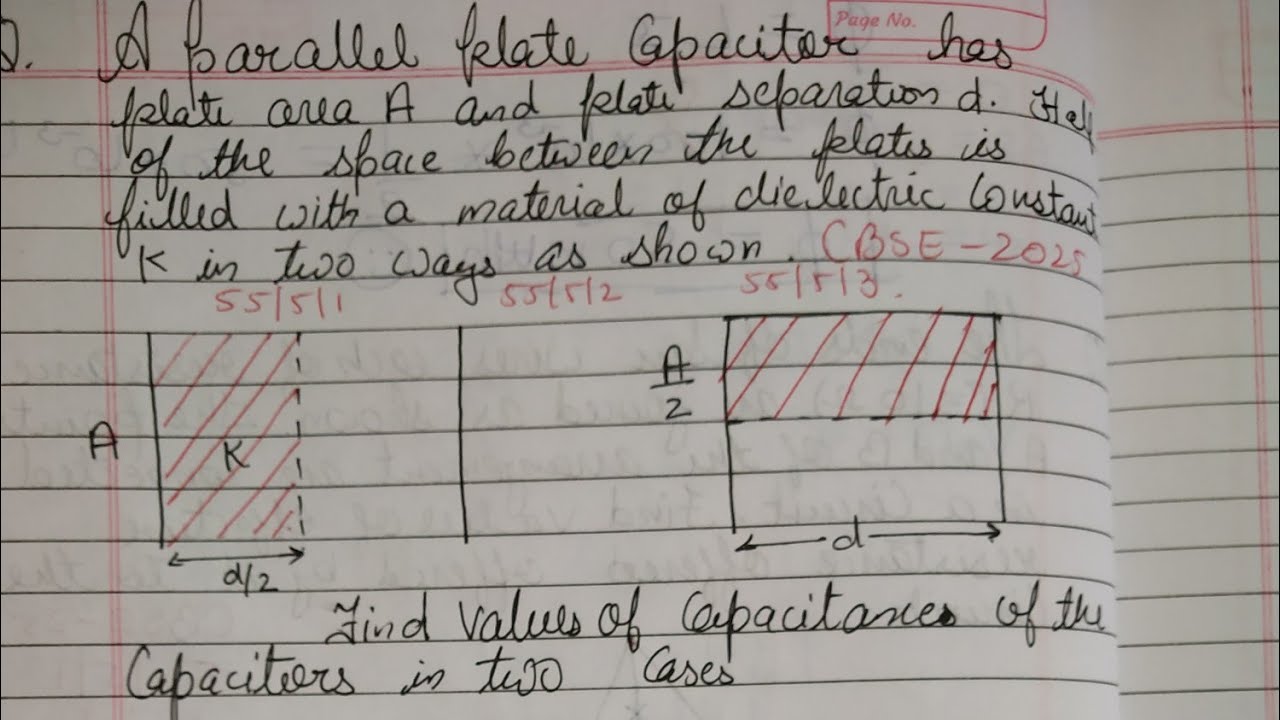 Page No.
Q. A parallel plate Capacitor has
plate area A and plate separation d. Half
of the space between the plates is
filled with a material of dielectric Constant
K in two ways as shown. CBSE-2025
55/5/1 55/5/2 55/5/3.
A/2
A K
d
d/2
Find values of Capacitances of the
Capacitors in two Cases